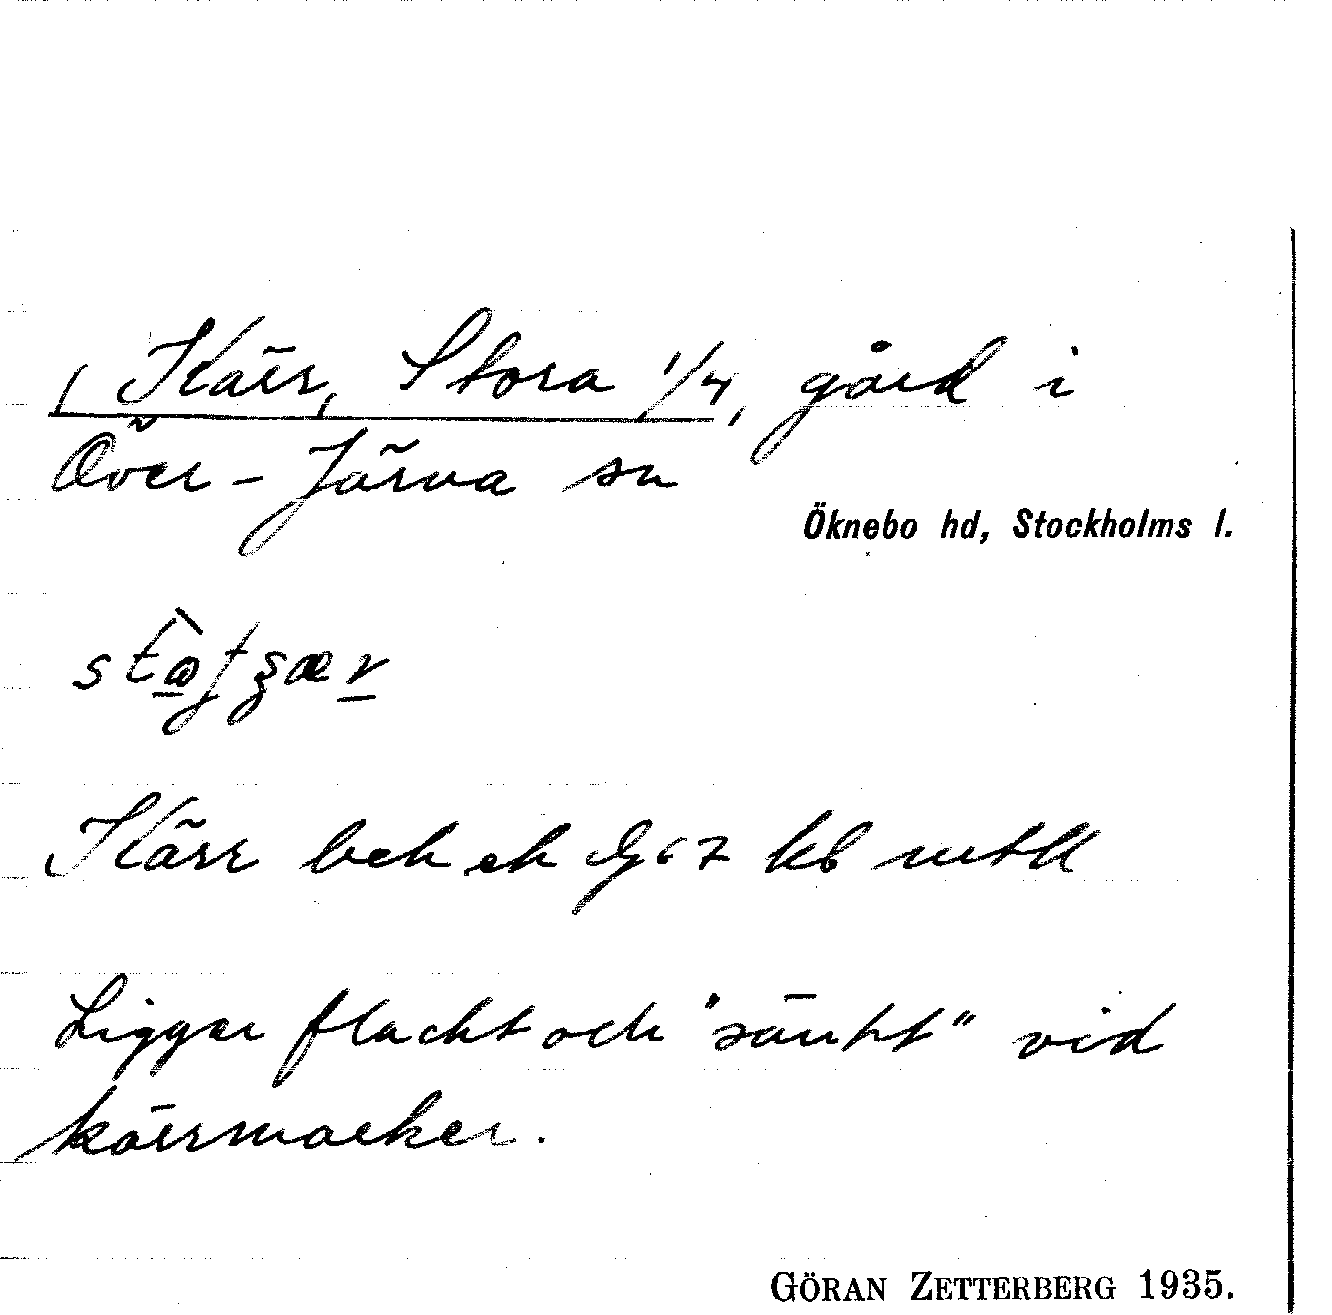 Kärr, Stora 1/4, gård i
Över-Järva sn
Öknebo hd, Stockholms l.
Kärr bek ek
Ligger flackt och "sänkt" vid
kärrmarker.
GÖRAN ZETTERBERG 1935.